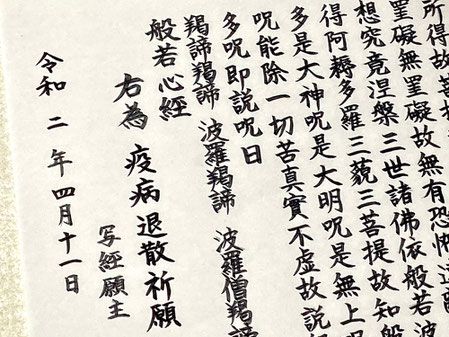 所得故菩提
罣礙無罣礙故無有恐怖遠
想究竟涅槃三世諸佛依般若波
得阿耨多羅三藐三菩提故知般
多是大神呪是大明呪是無上
呪能除一切苦真實不虚故説
多呪即説呪曰
羯諦羯諦 波羅羯諦 波羅僧羯諦
般若心經
右為 疫病退散祈願
写經願主
令和 二 年四月十一日